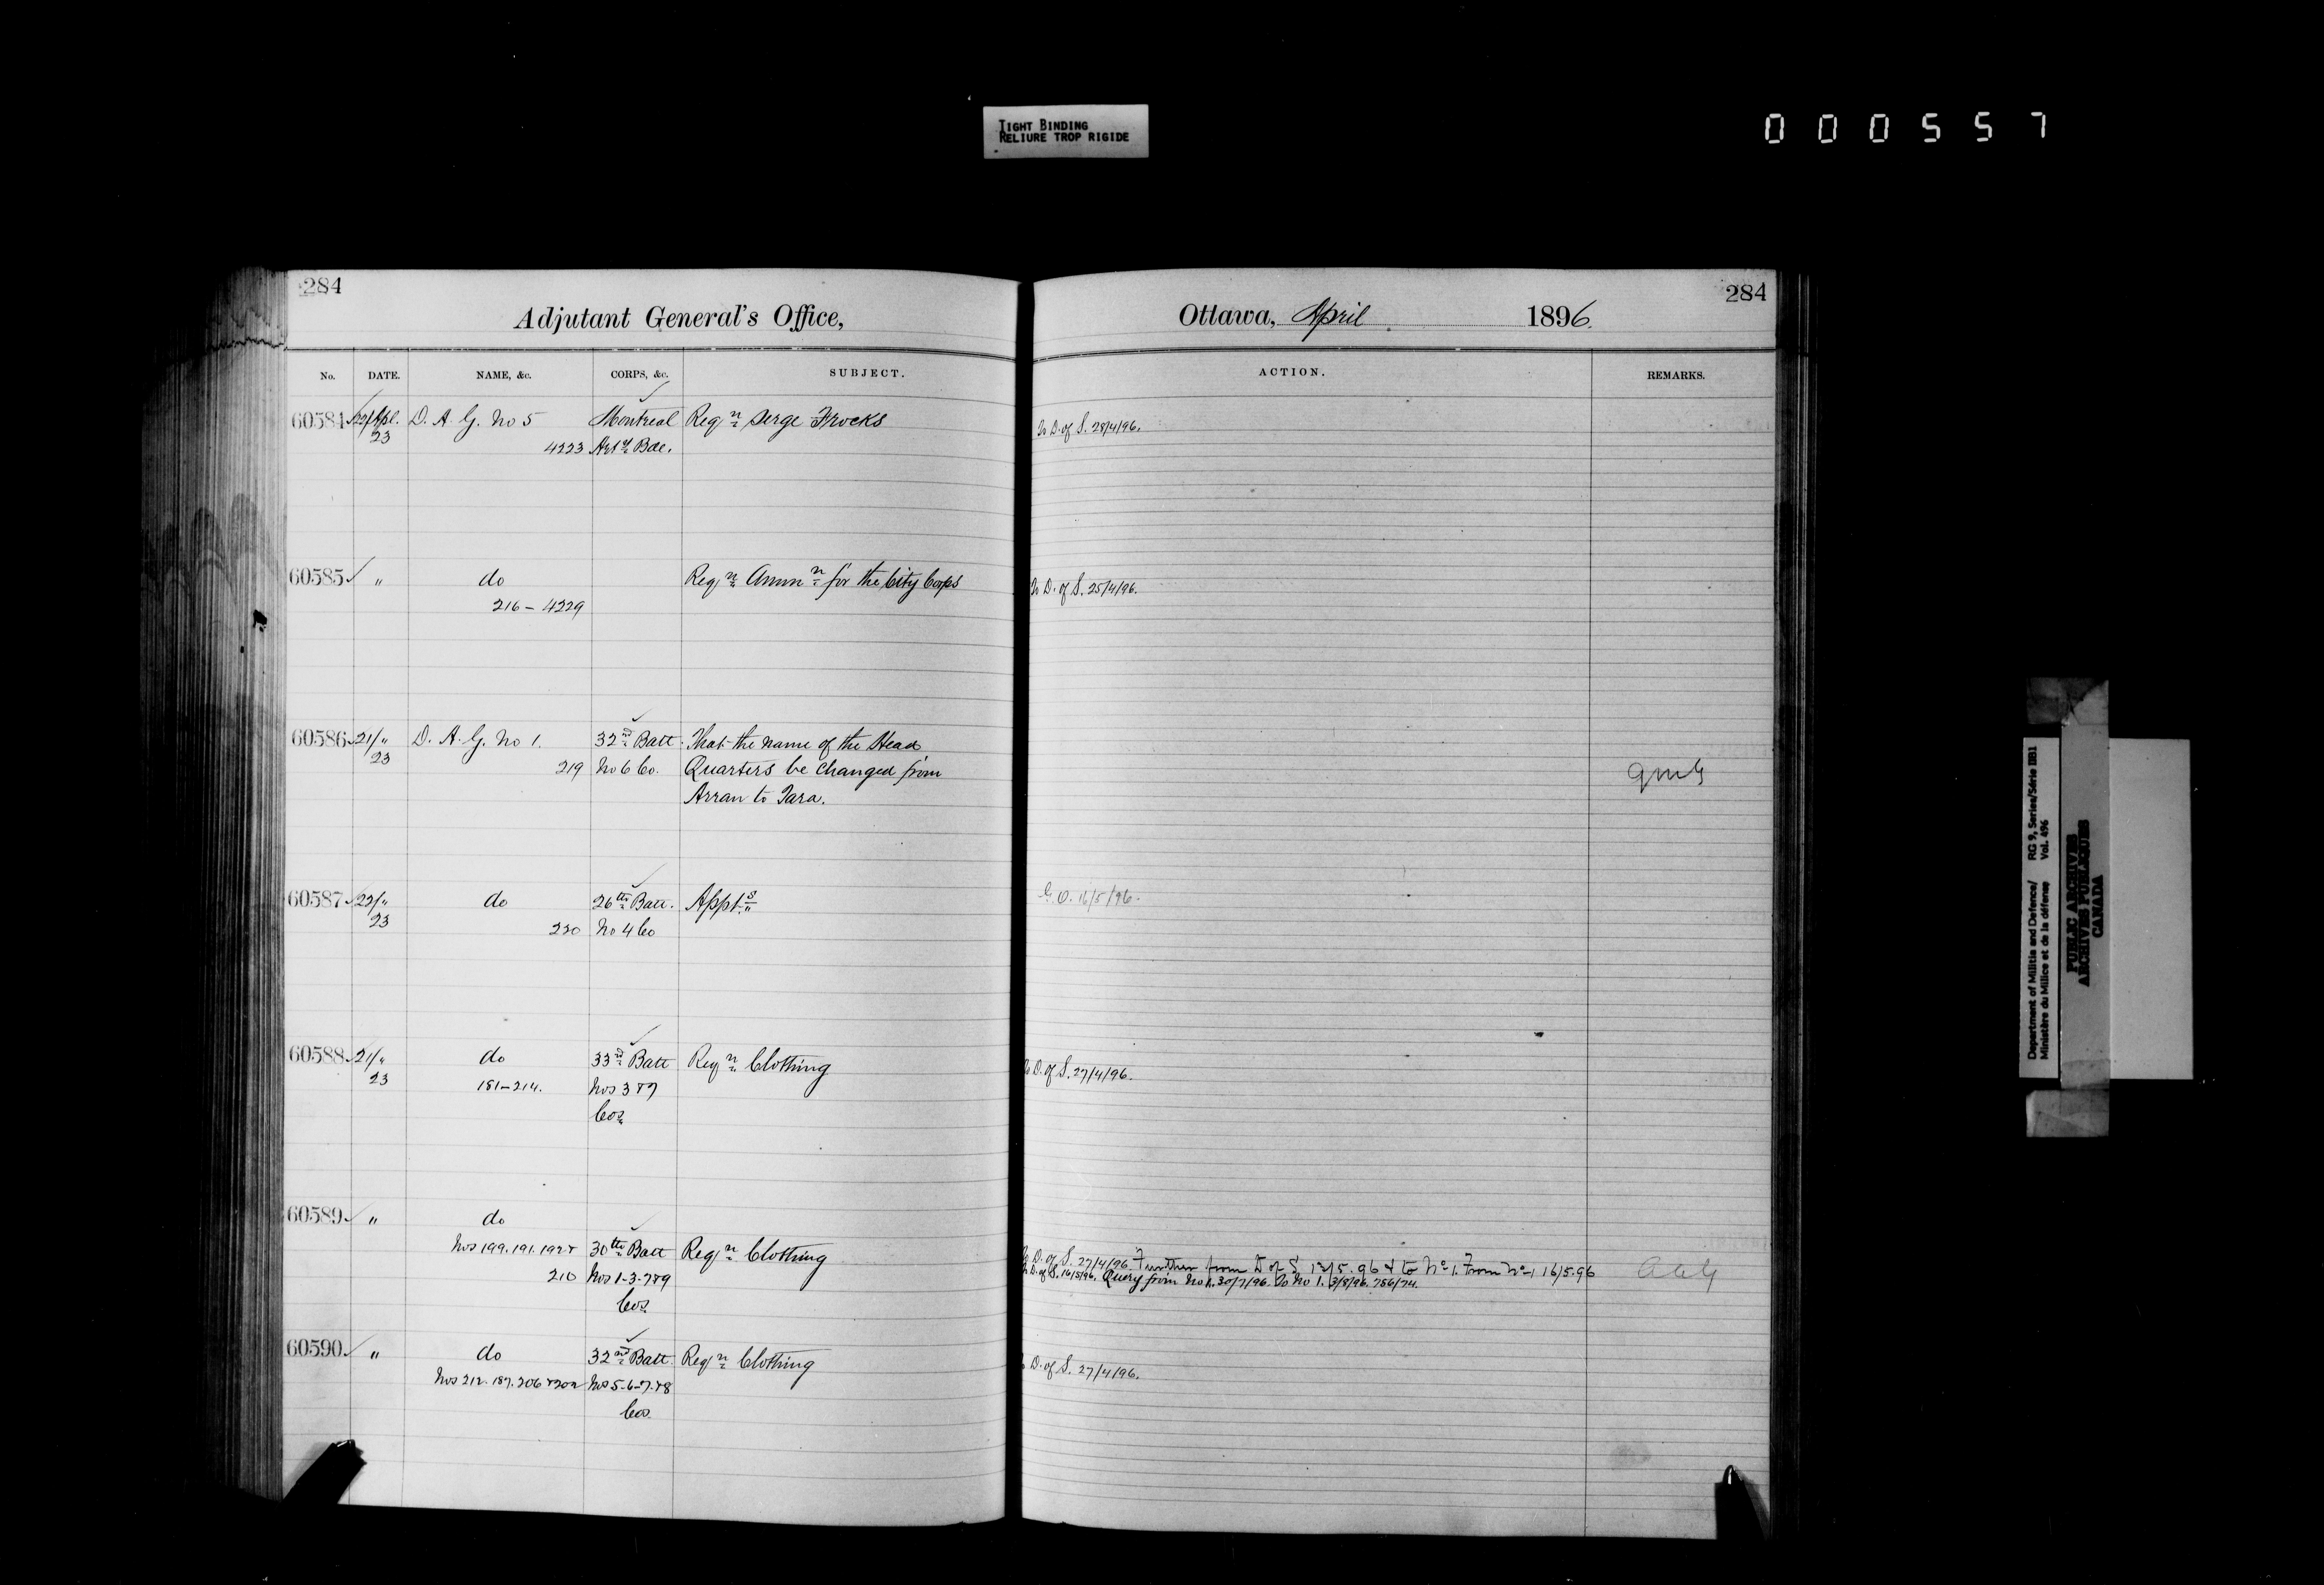 TIGHT BINDING
RELIURE TROP RIGIDE
000557
284
Adjutant General's Office,
No. DATE. NAME, &c. CORPS, &c. SUBJECT.
60584 22/Apl. D. A. G. No 5 Montreal Reqn Serge Frocks
23
4223 Arty Bde.
60585 " do Reqn Ammn for the City Corps
216 – 4229
60586 21/" D. A. G. No 1. 32nd Batt. That the name of the Head
23 219 No 6 Co. Quarters be changed from
Arran to Tara.
60587 22/" do 26th Batt. Appts
23 220 No 4 Co
60588 21/" do 33rd Batt Reqn Clothing
23 181–214. Nos 3 & 7
Cos.
60589 " do
Nos 199. 191. 192 & 30th Batt Reqn Clothing
210 Nos 1-3-7&9
Cos.
60590 " do 32nd Batt. Reqn Clothing
Nos 212. 187. 206 & 202 Nos 5-6-7-&8
Cos.
284
Ottawa, April 1896.
ACTION. REMARKS.
To D. of S. 28/4/96.
To D. of S. 25/4/96.
QMG
G. O. 16/5/96.
To D. of S. 27/4/96.
To D. of S. 27/4/96. Further from D of S 12/5.96 & to No 1. From No 1 16/5.96
To D. of S. 16/5/96. Query from No 1. 30/7/96. To No 1. 13/8/96. 756/74.
D. of S. 27/4/96.
Department of Militia and Defence/ RG 9, Series/Série IIB1
Ministère du Milice et de la défense Vol. 496
PUBLIC ARCHIVES
ARCHIVES PUBLIQUES
CANADA